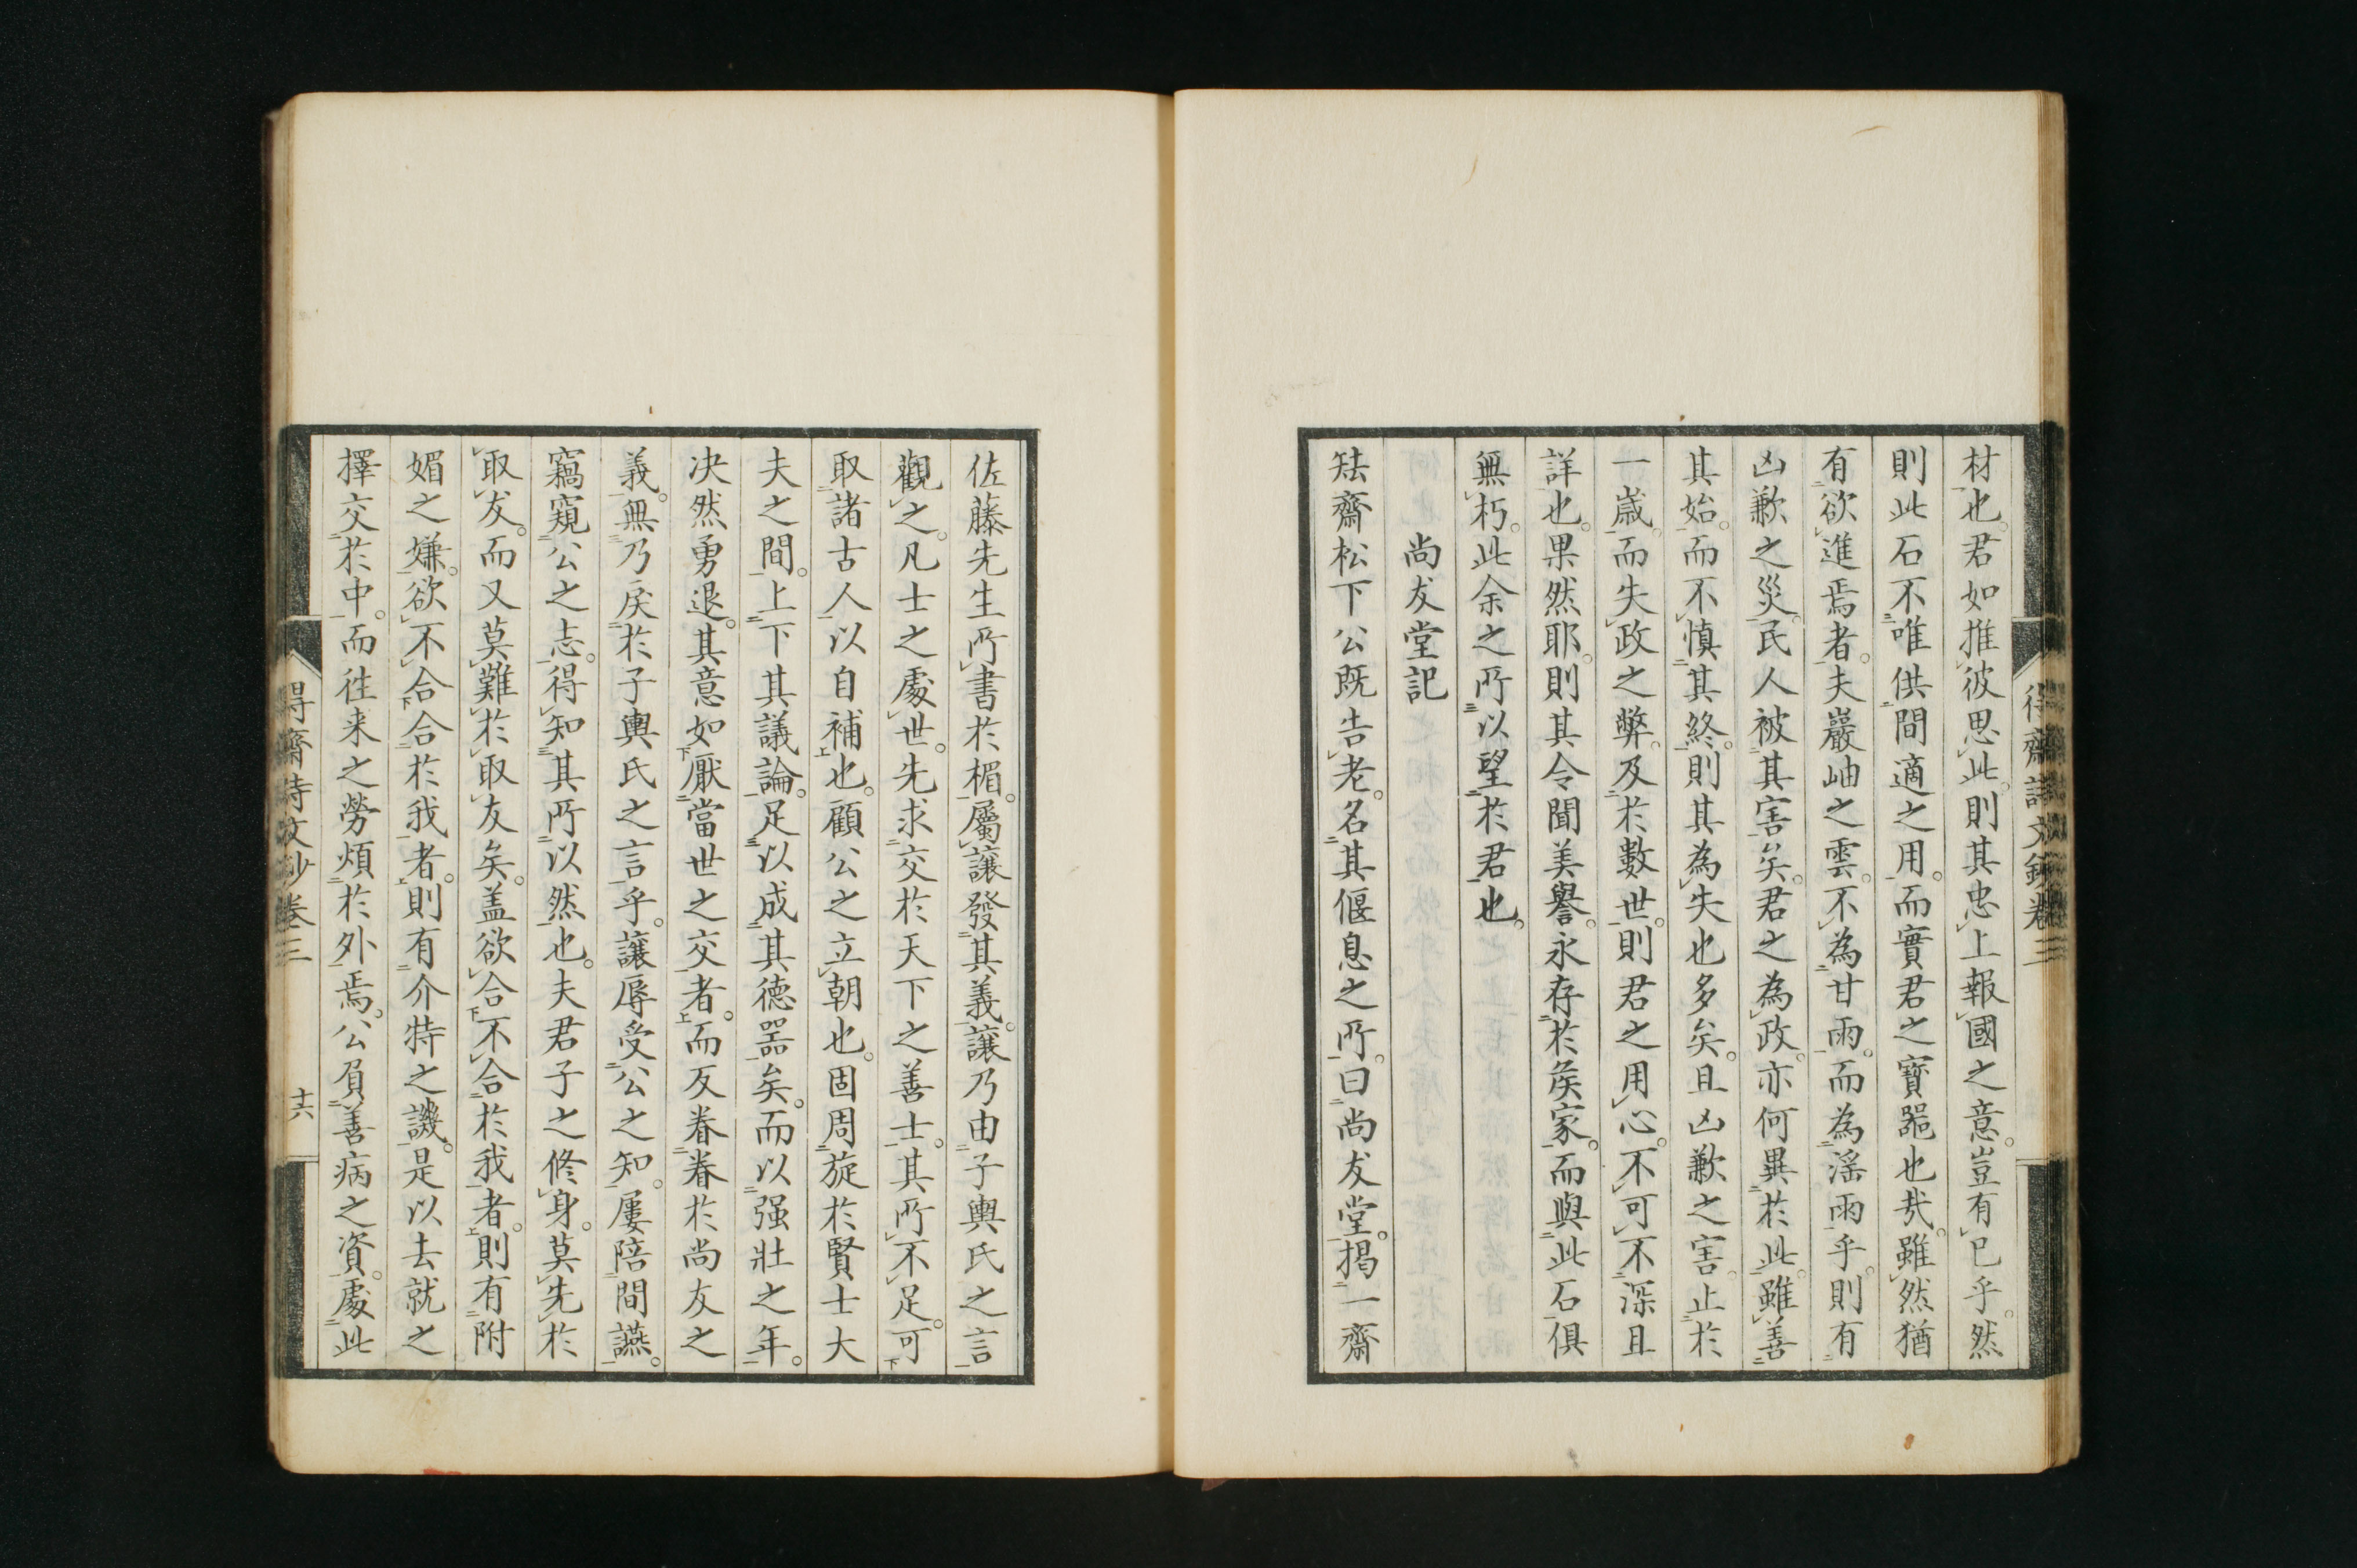 材也。君如推彼思此。則其忠上報國之意。豈有已乎。然
則此石不唯供間適之用。而實君之寶噐也㢤。雖然猶
有欲進焉者。夫巖岫之雲。不為甘雨。而為淫雨乎。則有
凶歉之災。民人被其害矣。君之為政。亦何異於此。雖善
其始。而不慎其終。則其為失也多矣。且凶歉之害。止於
一歳。而失政之弊。及於數世。則君之用心。不可不深且
詳也。果然耶。則其令聞美譽。永存於矦家。而與此石俱
無朽。此余之所以望於君也。
尚友堂記
㤖齋松下公既告老。名其偃息之所。曰尚友堂。揭一齋
佐藤先生所書於楣。屬讓發其義。讓乃由子輿氏之言
觀之。凡士之處世。先求交於天下之善士。其所不足。可
取諸古人以自補也。顧公之立朝也。固周旋於賢士大
夫之間。上下其議論。足以成其德噐矣。而以强壯之年。
決然勇退。其意如厭當世之交者。而反眷眷於尚友之
義。無乃戾於子輿氏之言乎。讓辱受公之知。屢陪間讌。
竊窺公之志。得知其所以然也。夫君子之修身。莫先於
取友。而又莫難於取友矣。盖欲合不合於我者。則有附
媚之嫌。欲不合合於我者。則有介特之譏。是以去就之
擇交於中。而往来之勞煩於外焉。公負善病之資。處此
得齋詩文鈔卷三
得齋詩文鈔卷三 十六